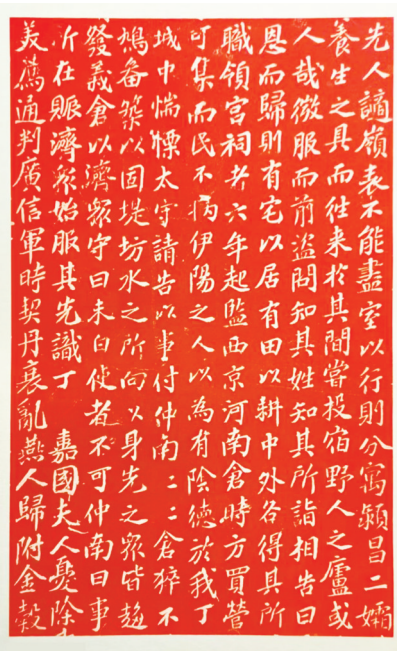 先人謫嶺表不能盡室以行則分寓潁昌二孀
養生之具而往来於其間嘗投宿野人之廬或
人哉微服而前盗問知其姓知其所詣相告曰
恩而歸則有宅以居有田以耕中外各得其所
職領宮祠者六年起監西京河南倉時方買營
可集而民不病伊陽之人以為有陰德於我丁
城中惴慄太守請告以事付仲南二二倉猝不
鳩畚築以固堤坊水之所向以身先之衆皆趨
發義倉以濟衆守曰未白使者不可仲南曰事
所在賑濟衆始服其先識丁 嘉國夫人憂除
美薦通判廣信軍時契丹衰亂燕人歸附金穀